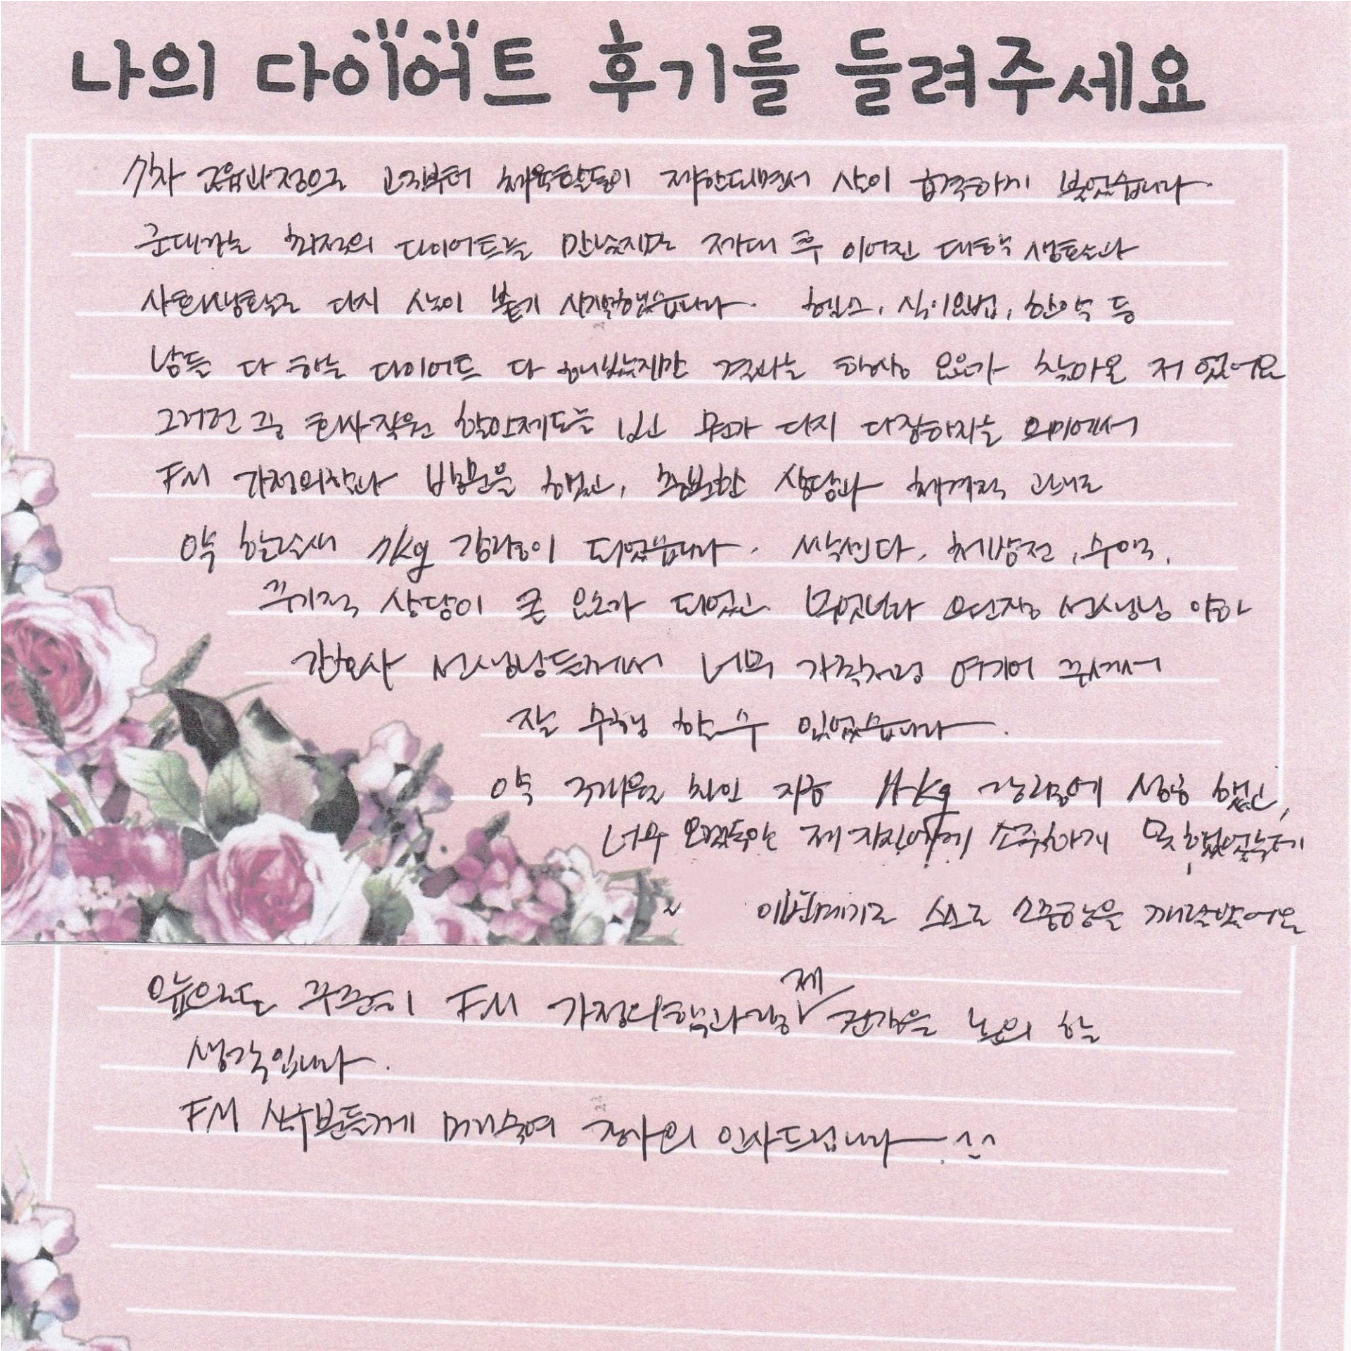 나의 다이어트 후기를 들려주세요
7차 교육과정으로 고3부터 체육활동이 제한되면서 살이 급격하게 쪘었습니다.
군대라는 최적의 다이어트를 만났지만 제대 후 이어진 대학 생활과
사회생활로 다시 살이 붙기 시작했습니다. 헬스, 식이요법, 한약 등
남들 다 하는 다이어트 다 해봤지만 결과는 항상 요요가 찾아온 저 였어요
그러던 중 회사직원 할인제도를 보고 다시 다잡하자는 의미에서
FM 가정의학과 방문을 했고, 충분한 상담과 체계적 관리로
약 한달새 7kg 감량이 되었습니다. 삭센다, 체방전, 수액,
주기적 상담이 큰 요소가 되었고 무엇보다 오단장 선생님 이하
간호사 선생님들께서 너무 가족처럼 여겨 주셔서
잘 수행 할 수 있었습니다.
약 3개월 차인 지금 14kg 감량에 성공 했고,
너무 제 자신에게 소중하게 못했었는데
이번 계기로 스스로 소중함을 깨달았어요~
앞으로도 꾸준히 FM 가정의학과랑 제 건강을 논의 할
생각입니다.
FM 식구분들께 머리숙여 감사의 인사드립니다. ^^